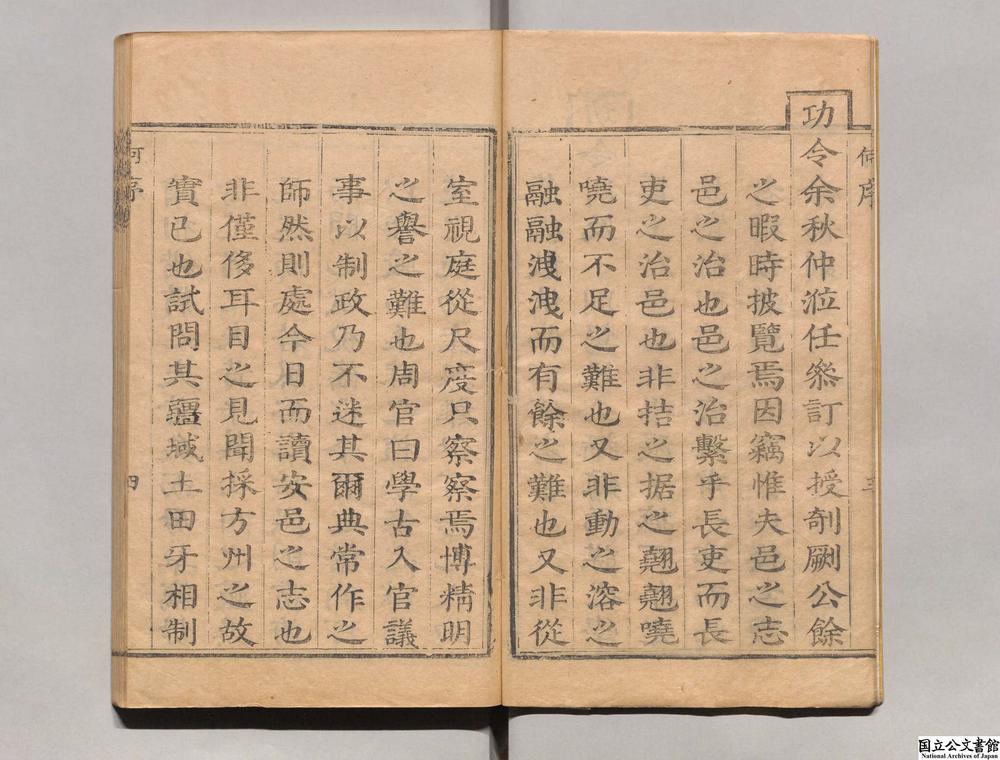 功令余秋仲涖任叅訂以授剞劂公餘
之暇時披覽焉因竊惟夫邑之志
邑之治也邑之治繫乎長吏而長
吏之治邑也非拮之据之翹翹嘵
嘵而不足之難也又非動之溶之
融融洩洩而有餘之難也又非從
何序
三
室視庭從尺度只察察焉博精明
之譽之難也周官曰學古入官議
事以制政乃不迷其爾典常作之
師然則處今日而讀安邑之志也
非僅侈耳目之見聞採方州之故
實已也試問其疆域土田牙相制
何序
四
国立公文書館
National Archives of Japan